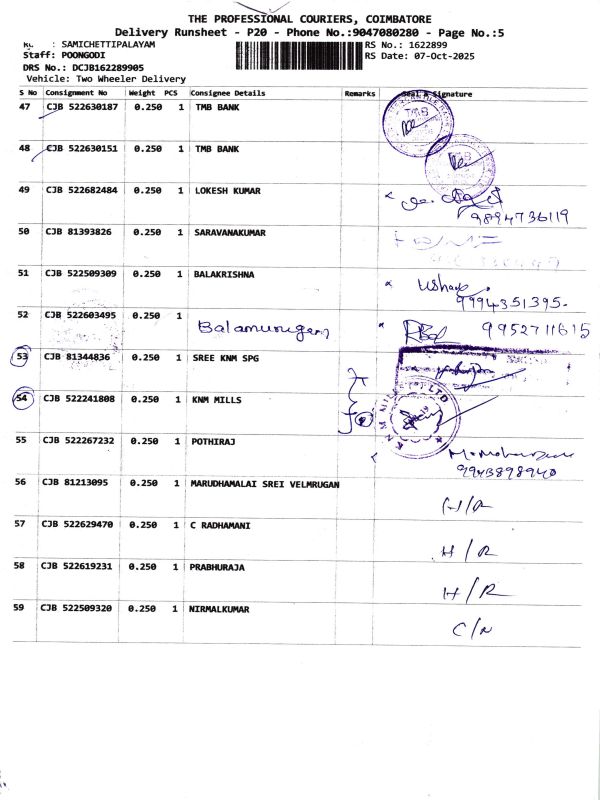 THE PROFESSIONAL COURIERS, COIMBATORE
Delivery Runsheet - P20 - Phone No.:9047080280 - Page No.:5
: SAMICHETTIPALAYAM
RS No.: 1622899
Staff: POONGODI
RS Date: 07-Oct-2025
DRS No.: DCJB162289905
Vehicle: Two Wheeler Delivery
S No Consignment No Weight PCS Consignee Details Remarks Seal & Signature
47 CJB 522630187 0.250 1 TMB BANK
TMB
48 CJB 522630151 0.250 1 TMB BANK
TMB
49 CJB 522682484 0.250 1 LOKESH KUMAR
9894736119
50 CJB 81393826 0.250 1 SARAVANAKUMAR
51 CJB 522509309 0.250 1 BALAKRISHNA
Usha
9994351395.
52 CJB 522603495 0.250 1 Balamurugan 9952711615
53 CJB 81344836 0.250 1 SREE KNM SPG
54 CJB 522241808 0.250 1 KNM MILLS
K N M MILLS (P) LTD
55 CJB 522267232 0.250 1 POTHIRAJ
9943898940
56 CJB 81213095 0.250 1 MARUDHAMALAI SREI VELMRUGAN
H/R
57 CJB 522629470 0.250 1 C RADHAMANI
H/R
58 CJB 522619231 0.250 1 PRABHURAJA
H/R
59 CJB 522509320 0.250 1 NIRMALKUMAR